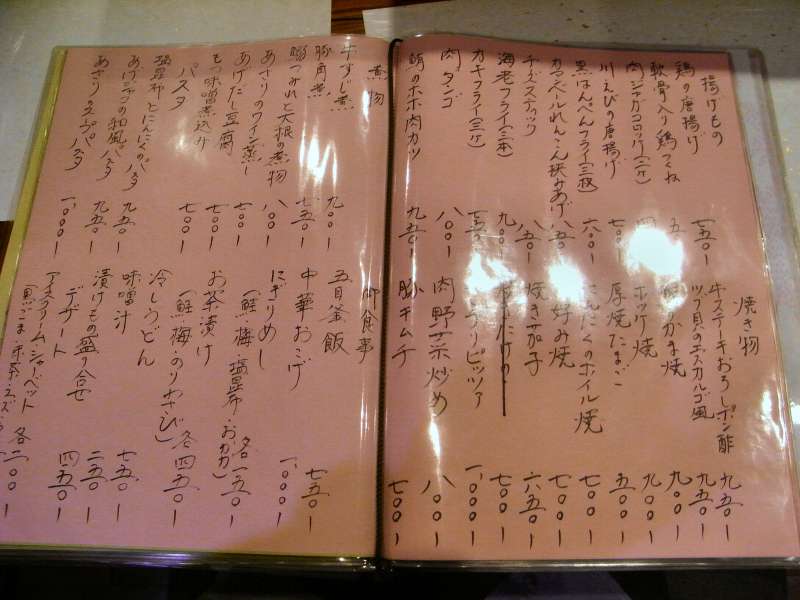 揚げもの
鶏の唐揚げ 七五〇ー
軟骨入り鶏つくね 五
肉ジャガコロッケ(二ケ) 四
川えびの唐揚げ 七〇〇ー
黒はんぺんフライ(三枚) 六〇〇ー
カマンベールれんこん挟みあげ 八五〇ー
チーズスティック 八五〇ー
海老フライ(三本) 九〇
カキフライ(三ケ) 七五〇
肉ダンゴ 八〇〇ー
鮪のホホ肉カツ 九五〇ー
焼き物
牛ステーキおろしポン酢 九五〇ー
ツブ貝のエスカルゴ風 九五〇ー
かま焼 九〇〇ー
ホッケ焼 九〇〇ー
厚焼たまご 五〇〇ー
にんにくのホイル焼 七〇〇ー
お好み焼 七〇〇ー
焼き茄子 六五〇ー
七〇〇ー
ピッツァ 一、〇〇〇ー
肉野菜炒め 八〇〇ー
豚キムチ 七〇〇ー
煮物
牛すじ煮 九〇〇ー
豚角煮 七五〇ー
鰯つみれと大根の煮物
あさりのワイン蒸し 八〇〇ー
あげだし豆腐 七〇〇ー
もつ味噌煮込み 七〇〇ー
パスタ
塩昆布とにんにくのパスタ 七〇〇ー
あげジャコの和風パスタ 九五〇ー
あさりのスープパスタ 九五〇ー
一、〇〇〇ー
御食事
五目釜飯
中華おこげ 七五〇ー
にぎりめし 一、〇〇〇ー
(鮭 梅 塩昆布 おかか) 各一五〇ー
お茶漬け
(鮭 梅 のり わさび) 各四五〇ー
冷しうどん 七五〇ー
味噌汁 二五〇ー
漬けもの盛り合せ 四五〇ー
デザート
アイスクリームシャーベット 各二〇〇ー